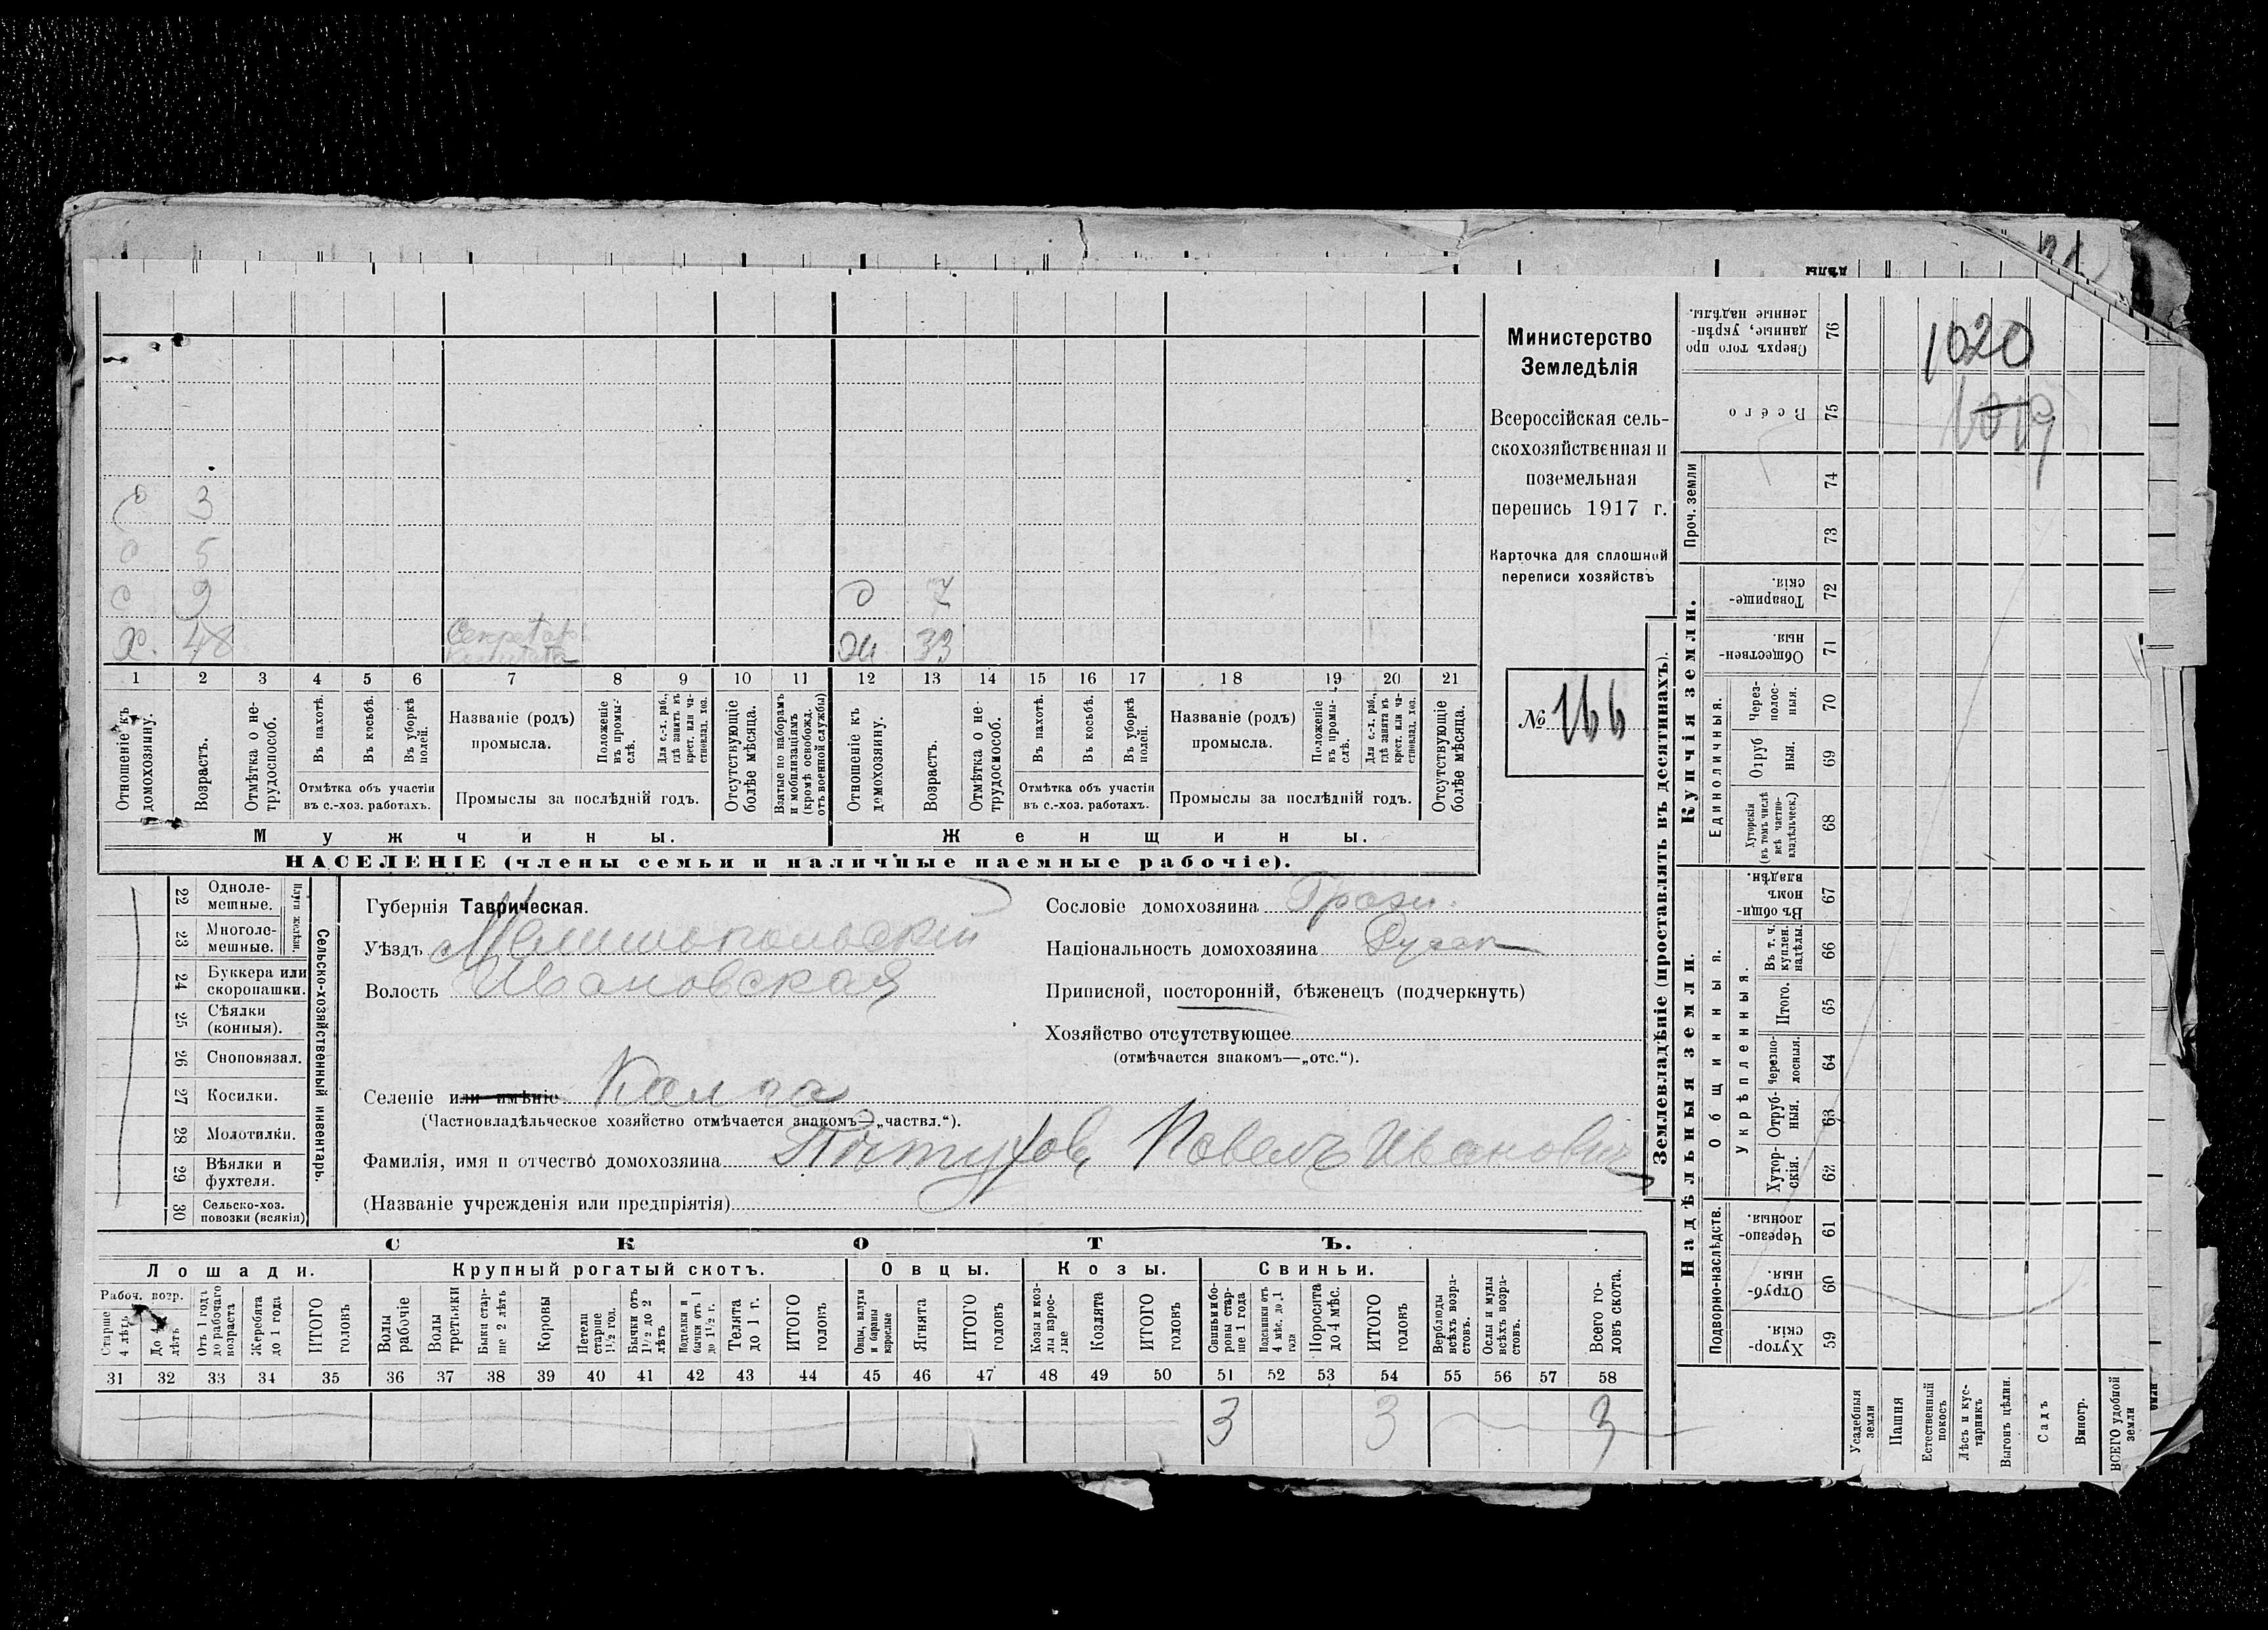 21
дѣлы
Министерство
Земледѣлія
Всероссійская сель-
скохозяйственная и
поземельная
перепись 1917 г.
Карточка для сплошной
переписи хозяйствъ
№ 166
1020
1019
с 3
с 5
с 9
х. 48 Секретарь
комитета
д 7
ж 33
1 2 3 4 5 6 7 8 9 10 11 12 13 14 15 16 17 18 19 20 21
Отношеніе къ домохозяину.
Возрастъ.
Отмѣтка о не-трудоспособ.
Въ пахотѣ.
Въ косьбѣ.
Въ уборкѣ полей.
Отмѣтка объ участіи
въ с.-хоз. работахъ.
Названіе (родъ)
промысла.
Положеніе въ промы-слѣ.
Для с.-х. раб., гдѣ занятъ въ крест. или ча-стновлад. хоз.
Промыслы за послѣдній годъ.
Отсутствующіе болѣе мѣсяца.
Взятые по наборамъ и мобилизаціямъ (кромѣ освобожд. отъ военной службы)
Отношеніе къ домохозяину.
Возрастъ.
Отмѣтка о не-трудоспособ.
Въ пахотѣ.
Въ косьбѣ.
Въ уборкѣ полей.
Отмѣтка объ участіи
въ с.-хоз. работахъ.
Названіе (родъ)
промысла.
Положеніе въ промы-слѣ.
Для с.-х. раб., гдѣ занята въ крест. или ча-стновлад. хоз.
Промыслы за послѣдній годъ.
Отсутствующіе болѣе мѣсяца.
Мужчины.
Женщины.
НАСЕЛЕНІЕ (члены семьи и наличные наемные рабочіе).
22 Одноле-мешные.
23 Многоле-мешные.
24 Буккера или скоропашки.
25 Сѣялки (конныя).
26 Сноповязал.
27 Косилки.
28 Молотилки.
29 Вѣялки и фухтеля.
30 Сельско-хоз. повозки (всякія)
Сельско-хозяйственный инвентарь.
Губернія Таврическая.
Уѣздъ Мелитопольскій
Волость Ивановская
Селеніе или имѣніе Калга
(Частновладѣльческое хозяйство отмѣчается знакомъ—„частвл.“).
Фамилія, имя и отчество домохозяина Пѣтуховъ Павелъ Ивановичъ
(Названіе учрежденія или предпріятія)
Сословіе домохозяина Граж.
Національность домохозяина Русск
Приписной, посторонній, бѣженецъ (подчеркнуть)
Хозяйство отсутствующее
(отмѣчается знакомъ—„отс.“).
СКОТЪ.
Лошади.
Крупный рогатый скотъ.
Овцы.
Козы.
Свиньи.
Рабоч. возр.
Старше 4 лѣтъ
До 4 лѣтъ
Отъ 1 года до рабочаго возраста
Жеребята до 1 года
ИТОГО головъ
Волы рабочіе
Волы третьяки
Быки стар-ше 2 лѣтъ
Коровы
Нетели старше 1½ год.
Бычки отъ 1½ до 2 лѣтъ
Подтелки и бычки отъ 1 до 1½ г.
Телята до 1 г.
ИТОГО головъ
Овцы, валухи и бараны взрослые
Ягнята
ИТОГО головъ
Козы и коз-лы взрос-лые
Козлята
ИТОГО головъ
Свиньи и бо-ровы стар-ше 1 года
Подсвинки отъ 4 мѣс. до 1 года
Поросята до 4 мѣс.
ИТОГО головъ
Верблюды всѣхъ возра-стовъ.
Ослы и мулы всѣхъ возра-стовъ.
Всего го-ловъ скота.
31 32 33 34 35 36 37 38 39 40 41 42 43 44 45 46 47 48 49 50 51 52 53 54 55 56 57 58
3 3 3
Землевладѣніе (проставлять въ десятинахъ).
Сверхъ того про-данные, укрѣп-ленные надѣлы. 76
Всего 75
Проч. земли
74
73
Купчія земли.
Товарище-скія. 72
Обществен-ныя. 71
Единоличныя.
Через-полос-ныя. 70
Отруб-ныя. 69
Хуторскія (въ томъ числѣ всѣ частно-владѣльческ.) 68
Надѣльныя земли.
Общинныя.
Въ общи-номъ владѣн. 67
Укрѣпленныя.
Въ т. ч. куплен. надѣлы. 66
Итого. 65
Черезпо-лосныя. 64
Отруб-ныя. 63
Хутор-скія. 62
Подворно-наслѣдств.
Черезпо-лосныя. 61
Отруб-ныя. 60
Хутор-скія. 59
Усадебныя земли
Пашня
Естественный покосъ
Лѣсъ и кус-тарникъ
Выгонъ цѣлин.
Садъ
Виногр.
ВСЕГО удобной земли